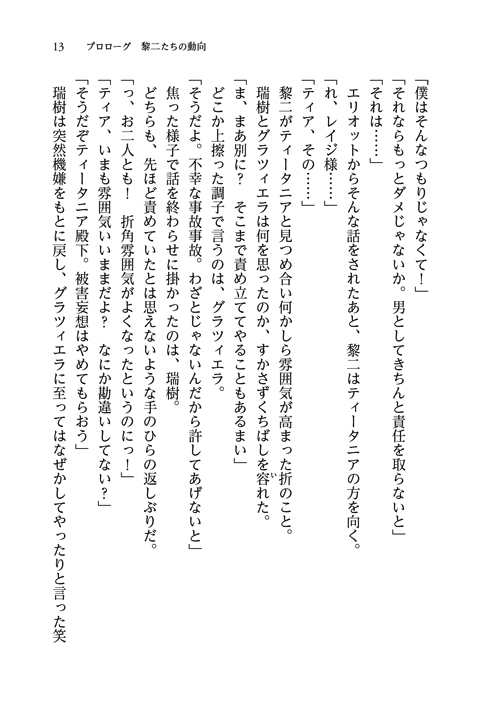 13　プロローグ　黎二たちの動向
「僕はそんなつもりじゃなくて！」
「それならもっとダメじゃないか。男としてきちんと責任を取らないと」
「それは……」
エリオットからそんな話をされたあと、黎二はティータニアの方を向く。
「れ、レイジ様……」
「ティア、その……」
黎二がティータニアと見つめ合い何かしら雰囲気が高まった折のこと。
瑞樹とグラツィエラは何を思ったのか、すかさずくちばしを容れた。
「ま、まあ別に？　そこまで責め立ててやることもあるまい」
どこか上擦った調子で言うのは、グラツィエラ。
「そうだよ。不幸な事故事故。わざとじゃないんだから許してあげないと」
焦った様子で話を終わらせに掛かったのは、瑞樹。
どちらも、先ほど責めていたとは思えないような手のひらの返しぶりだ。
「っ、お二人とも！　折角雰囲気がよくなったというのにっ！」
「ティア、いまも雰囲気いいままだよ？　なにか勘違いしてない？」
「そうだぞティータニア殿下。被害妄想はやめてもらおう」
瑞樹は突然機嫌をもとに戻し、グラツィエラに至ってはなぜかしてやったりと言った笑